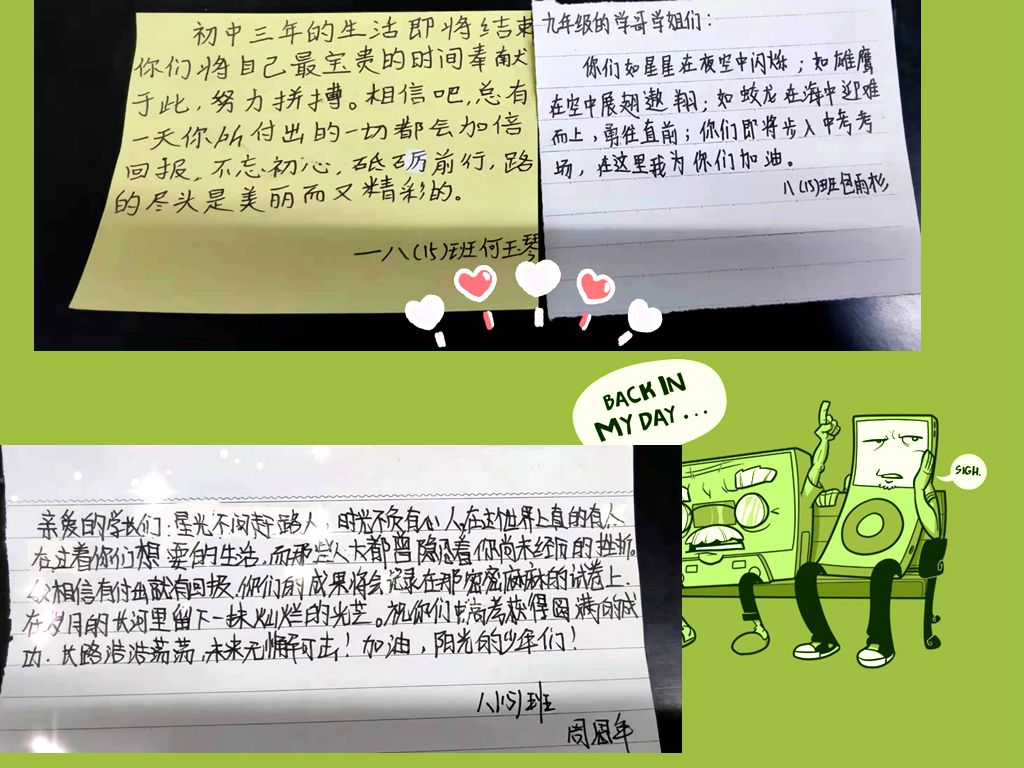 初中三年的生活即将结束
你们将自己最宝贵的时间奉献
于此,努力拼搏。相信吧,总有
一天你所付出的一切都会加倍
回报,不忘初心,砥砺前行,路
的尽头是美丽而又精彩的。
一八(15)班何玉琴
九年级的学哥学姐们:
你们如星星在夜空中闪烁;如雄鹰
在空中展翅遨翔;如蛟龙在海中迎难
而上,勇往直前;你们即将步入中考考
场,在这里我为你们加油。
八(15)班包雨杉
BACK IN
MY DAY...
SIGH.
亲爱的学长们:星光不问赶路人,时光不负有心人。在这世界上真的有人
在过着你们想要的生活,而那些人大都曾隐忍着你尚未经历的挫折。
相信有付出就有回报,你们的成果将会记录在那密密麻麻的试卷上.
在岁月的长河里留下一抹灿烂的光芒。祝你们中高考获得圆满的成
功.长路浩浩荡荡,未来无懈可击!加油,阳光的少年们!
八(15)班
周年